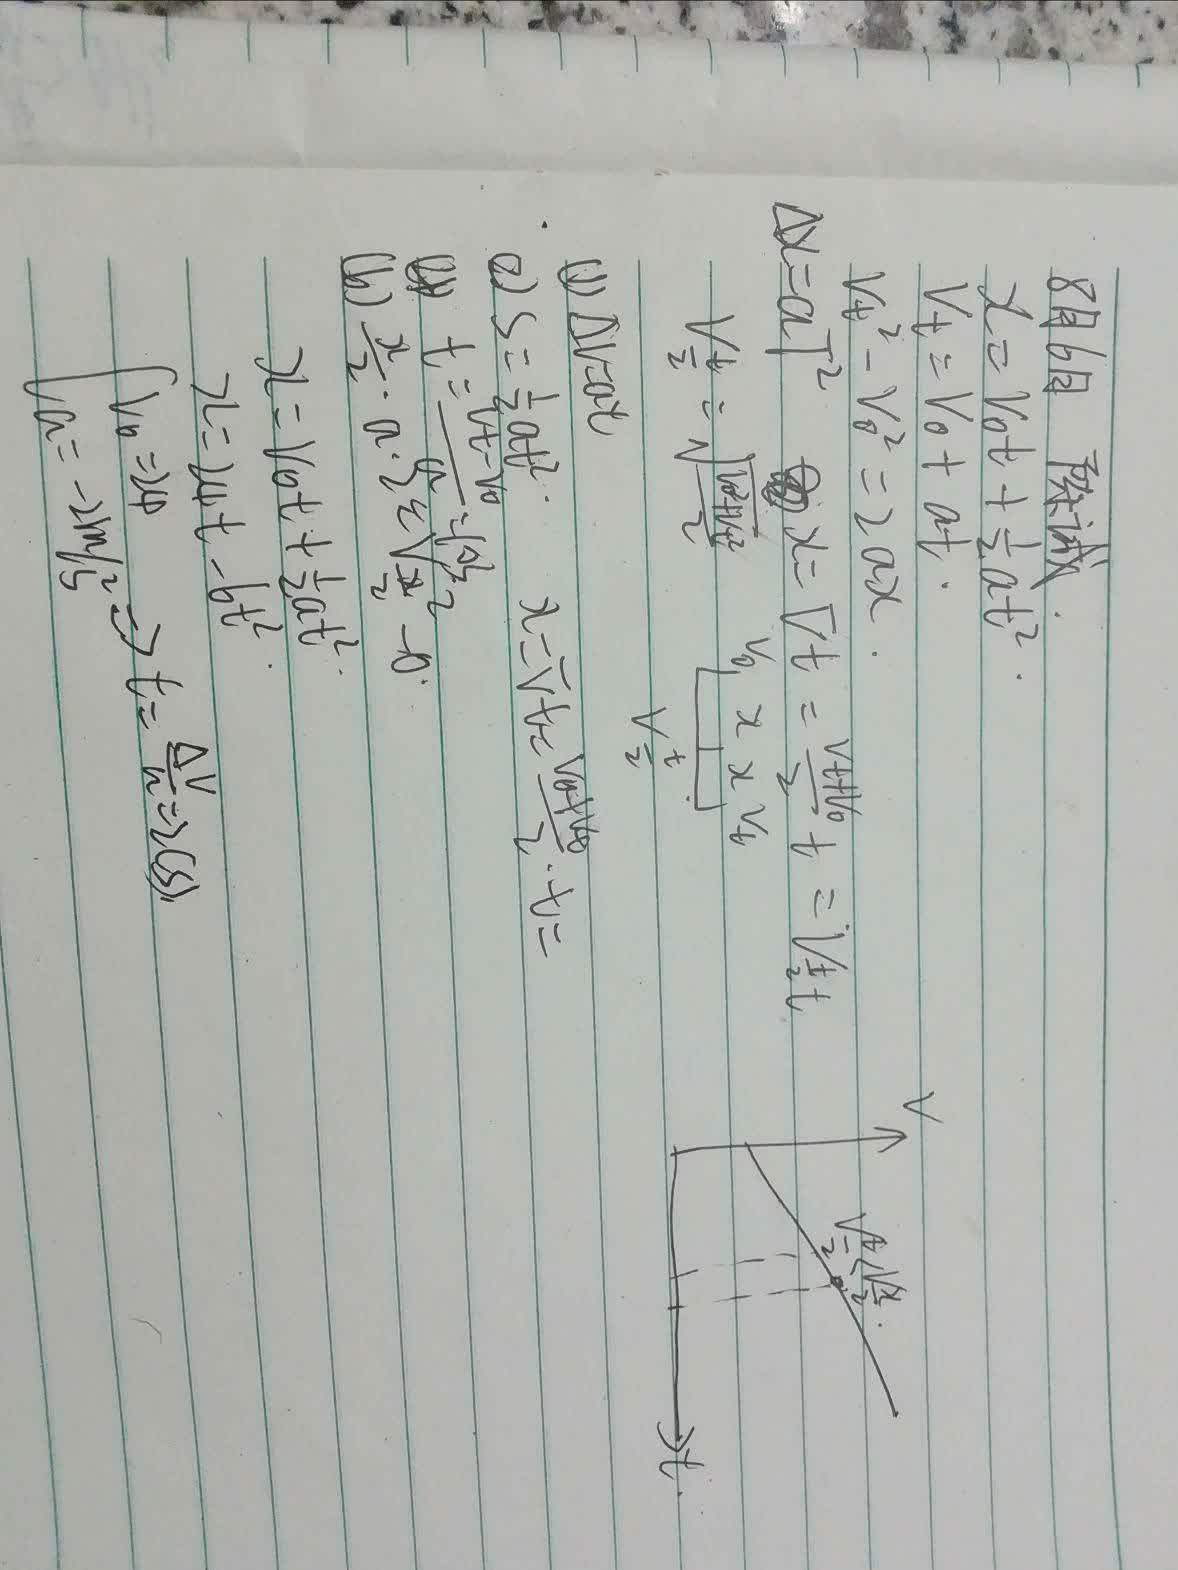 8月6日 面试.
x=V₀t+½at².
Vt=V₀+at.
Vt²-V₀²=2ax.
Δx=aT² x=V̄t=(Vt+V₀)/2 t=V_{t/2}t
V_{t/2}=√((V₀²+Vt²)/2)
V₀ x x Vt
V_{t/2}
(1) ΔV=at
(2) S=½at². x=V̄t=(V₀+Vt)/2·t=
t=(Vt-V₀)/a
x/2
x=V₀t+½at².
x=24t-6t².
V₀=24
a=-12m/s² => t=ΔV/a=2(s)
V
V_{t/2}<V_{x/2}.
t.